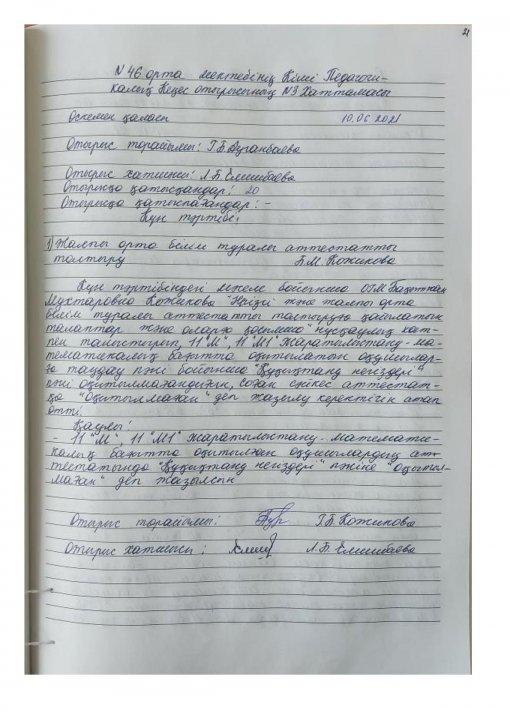 21
№46 орта мектебінің Кіші Педагоги-
калық Кеңес отырысының №3 Хаттамасы
Өскемен қаласы 10.06.2021
Отырыс төрайымы: Г.Б.Ауганбаева
Отырыс хатшысы: Л.Б.Елишбаева
Отырысқа қатысқандар: 20
Отырысқа қатыспағандар: -
Күн тәртібі:
1) Жалпы орта білім туралы аттестатты
толтыру Б.М. Кожикова
Күн тәртібіндегі мәселе бойынша
Мухтаровна Кожикова "Негізгі және жалпы орта
білім" туралы аттестатты тастыруға қойылатын
талаптар және оларға қосымша" нұсқаулық хат-
пен таныстырып, 11 "М", 11 "М1" жаратылыстану-ма-
тематикалық бағытта оқытылатын оқушылар-
ға таңдау пәні бойынша "Құқықтану негіздері"
пәні оқытылмағандығын, соған сәйкес аттестат-
қа "Оқытылмаған" деп жазылу керектігін атап
өтті.
Қаулы:
- 11 "М", 11 "М1" жаратылыстану-математи-
калық бағытта оқытылған оқушылардың ат-
тестатында "Құқықтану негіздері" пәніне "Оқытыл-
маған" деп жазылсын
Отырыс төрайымы: Г.Б.Кожикова
Отырыс хатшысы: Л.Б.Елишбаева